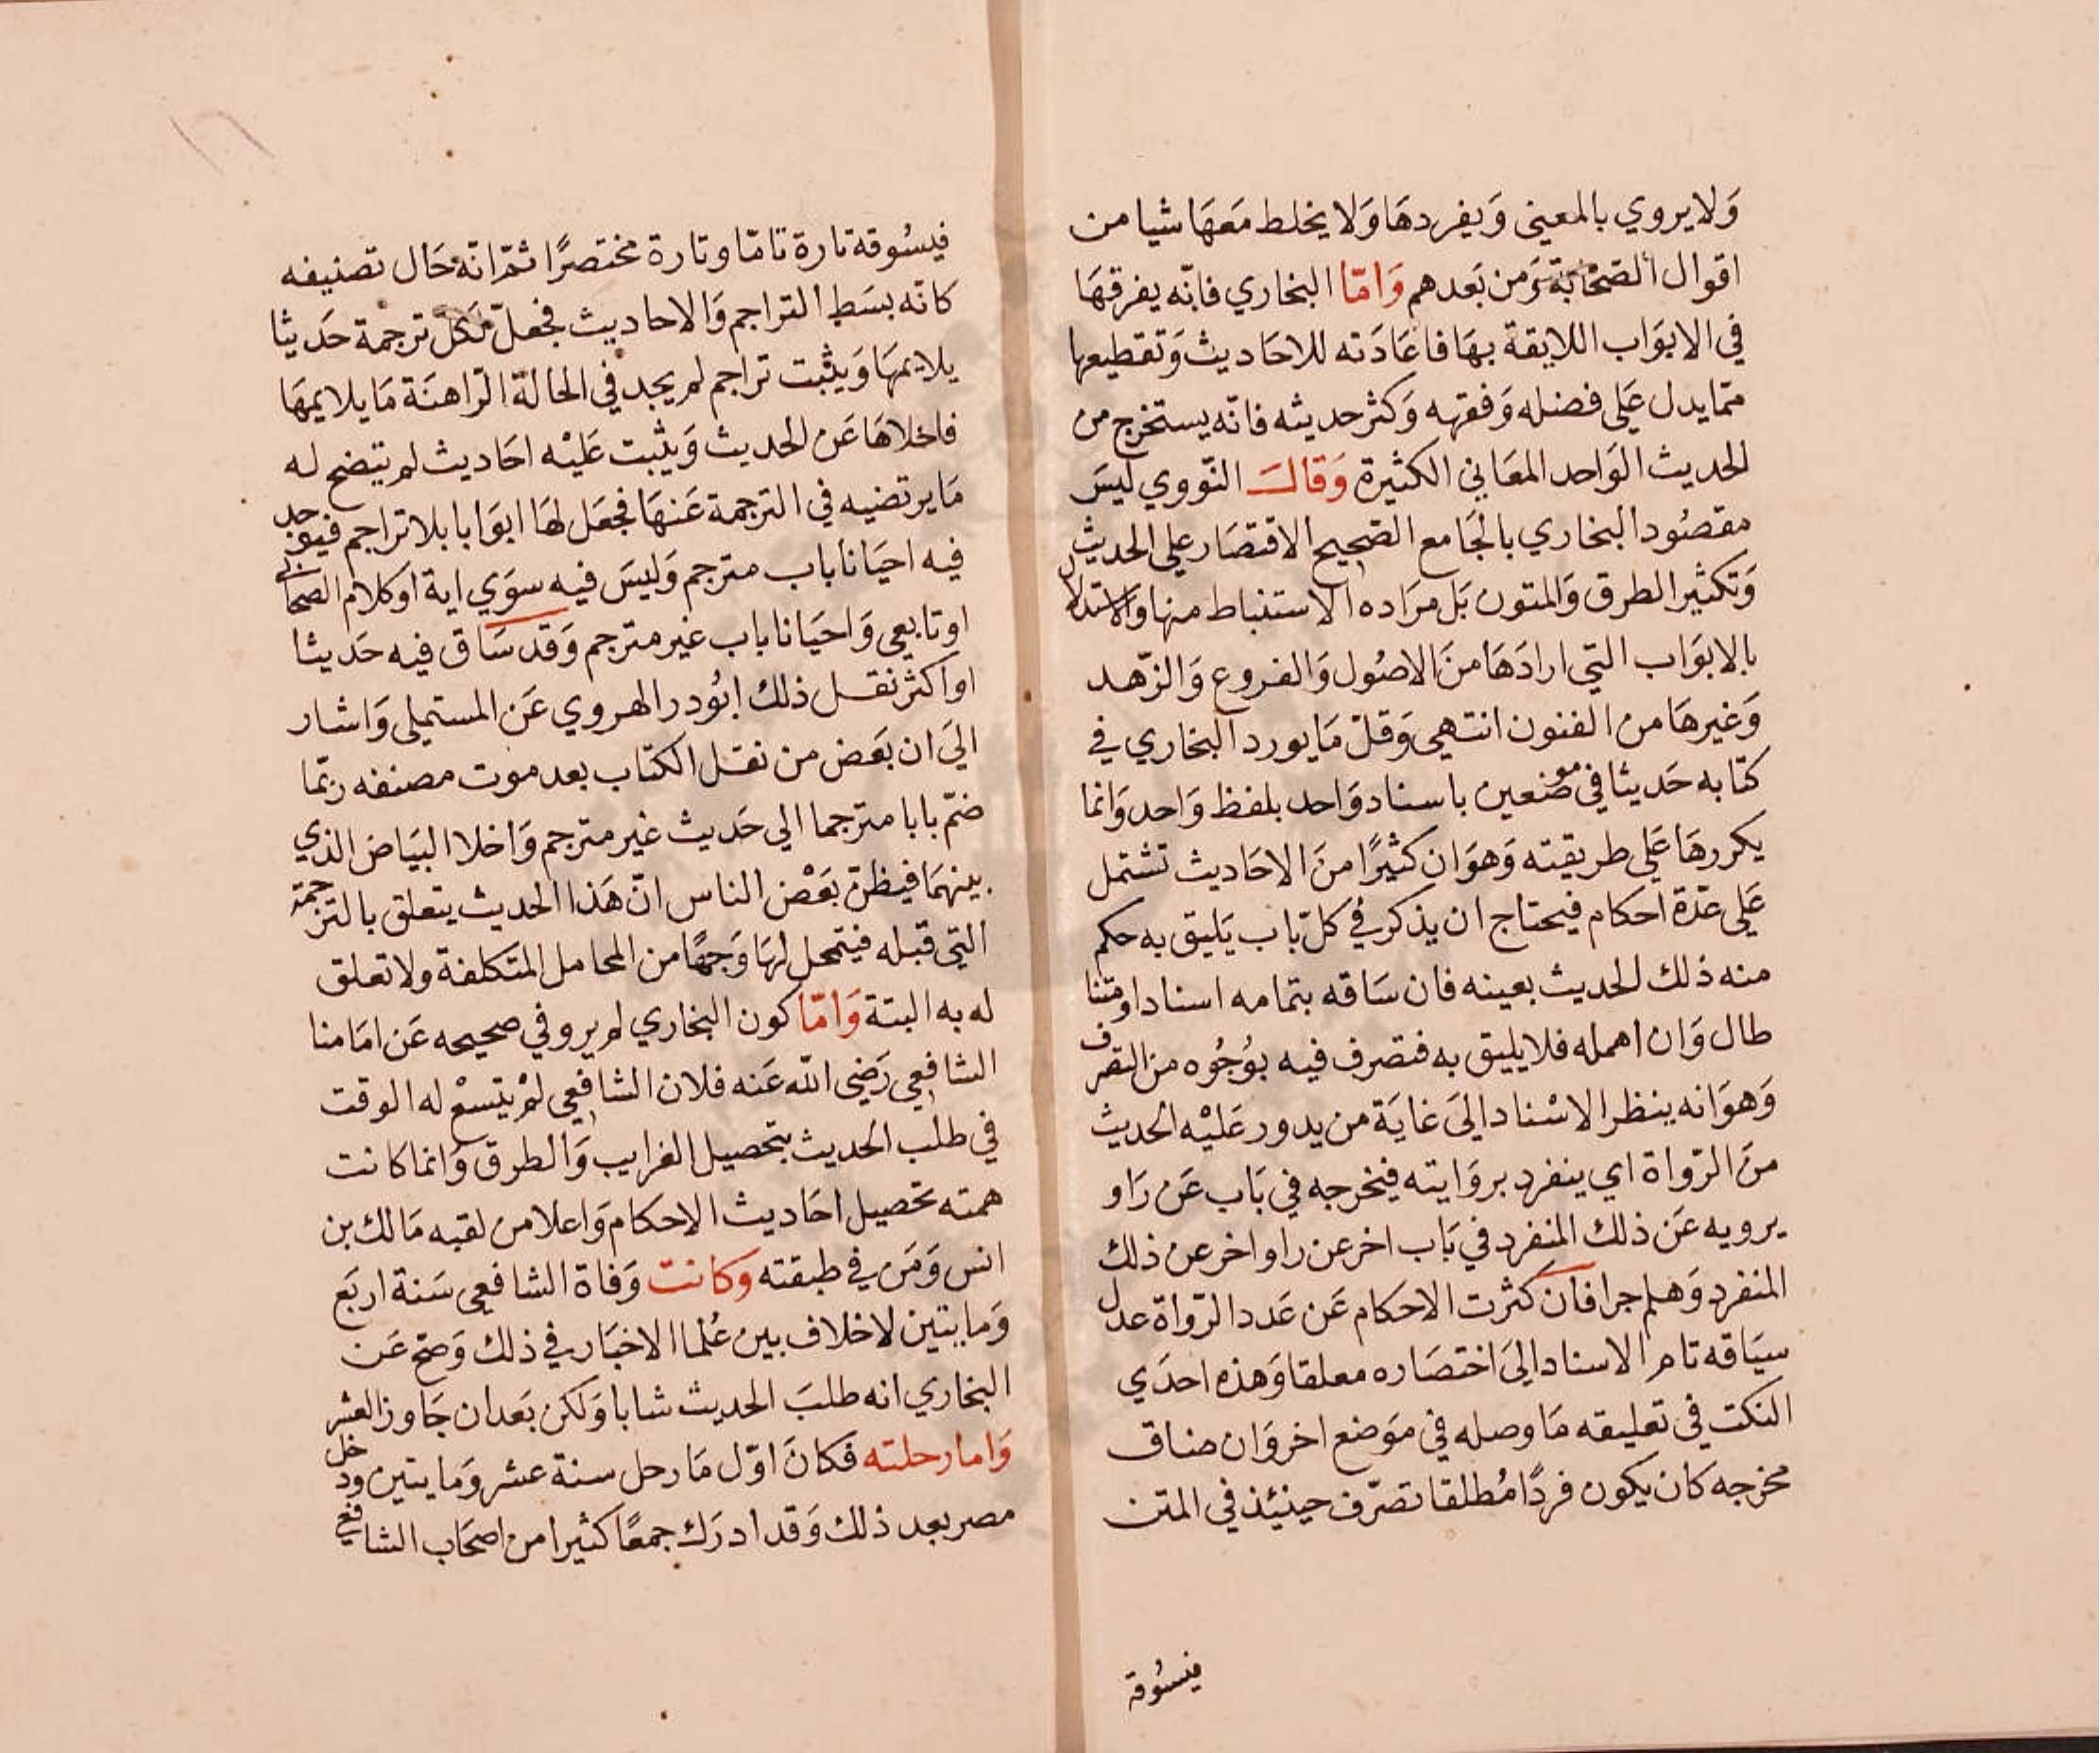 ولا يروي بالمعيني ويفردها ولا يخلط معها شيا من
اقوال الصحابة ومن بعدهم واما البخاري فانه يفرقها
في الابواب اللايقة بها فاعادته للاحاديث وتقطيعها
مما يدل على فضله وفقهه وكثر حديثه فانه يستخرج من
الحديث الواحد المعاني الكثيرة وقال النووي ليس
مقصود البخاري بالجامع الصحيح الاقتصار على الحديث
وتكثير الطرق والمتون بل مراده الاستنباط منها والاستدلال
بالابواب التي ارادها من الاصول والفروع والزهد
وغيرها من الفنون انتهى وقل ما يورد البخاري في
كتابه حديثا في موضعين باسناد واحد بلفظ واحد وانما
يكررها على طريقته وهو ان كثيرا من الاحاديث تشتمل
على عدة احكام فيحتاج ان يذكر في كل باب يليق به حكم
منه ذلك الحديث بعينه فان ساقه بتمامه اسنادا ومتنا
طال وان اهمله فلا يليق به فتصرف فيه بوجوه من التصرف
وهو انه ينظر الاسناد الى غاية من يدور عليه الحديث
من الرواة اي ينفرد بروايته فيخرجه في باب عن راو
يرويه عن ذلك المنفرد في باب اخر عن راو اخر عن ذلك
المنفرد وهلم جرا فان كثرت الاحكام عن عدد الرواة عدل
سياقه تام الاسناد الى اختصاره معلقا وهذه احدي
النكت في تعليقه ما وصله في موضع اخر وان ضاق
مخرجه كان يكون فردا مطلقا تصرف حينئذ في المتن
فيسوقه
فيسوقه تارة تاما وتارة مختصرا ثم انه حال تصنيفه
كانه بسط التراجم والاحاديث فجعل لكل ترجمة حديثا
يلايمها ويثبت تراجم لم يجد في الحالة الراهنة ما يلايمها
فاخلاها عن الحديث ويثبت عليه احاديث لم يتضح له
ما يرتضيه في الترجمة عنها فجعل لها ابوابا بلا تراجم فيوجد
فيه احيانا باب مترجم وليس فيه سوي اية او كلام الصحابي
او تابعي واحيانا باب غير مترجم وقد ساق فيه حديثا
او اكثر نقل ذلك ابو در الهروي عن المستملي واشار
الي ان بعض من نقل الكتاب بعد موت مصنفه ربما
ضم بابا مترجما الي حديث غير مترجم واخلا البياض الذي
بينهما فيظن بعض الناس ان هذا الحديث يتعلق بالترجمة
التي قبله فيتمحل لها وجها من المحامل المتكلفة ولا تعلق
له به البتة واما كون البخاري لم يرو في صحيحه عن امامنا
الشافعي رضي الله عنه فلان الشافعي لم يتسع له الوقت
في طلب الحديث بتحصيل الغرايب والطرق وانما كانت
همته تحصيل احاديث الاحكام واعلا من لقبه مالك بن
انس ومن في طبقته وكانت وفاة الشافعي سنة اربع
وما يتين لا خلاف بين علما الاخبار في ذلك وصح عن
البخاري انه طلب الحديث شابا ولكن بعد ان جاوز العشر
واما رحلته فكان اول ما رحل سنة عشر وما يتين ودخل
مصر بعد ذلك وقد ادرك جمعا كثيرا من اصحاب الشافعي